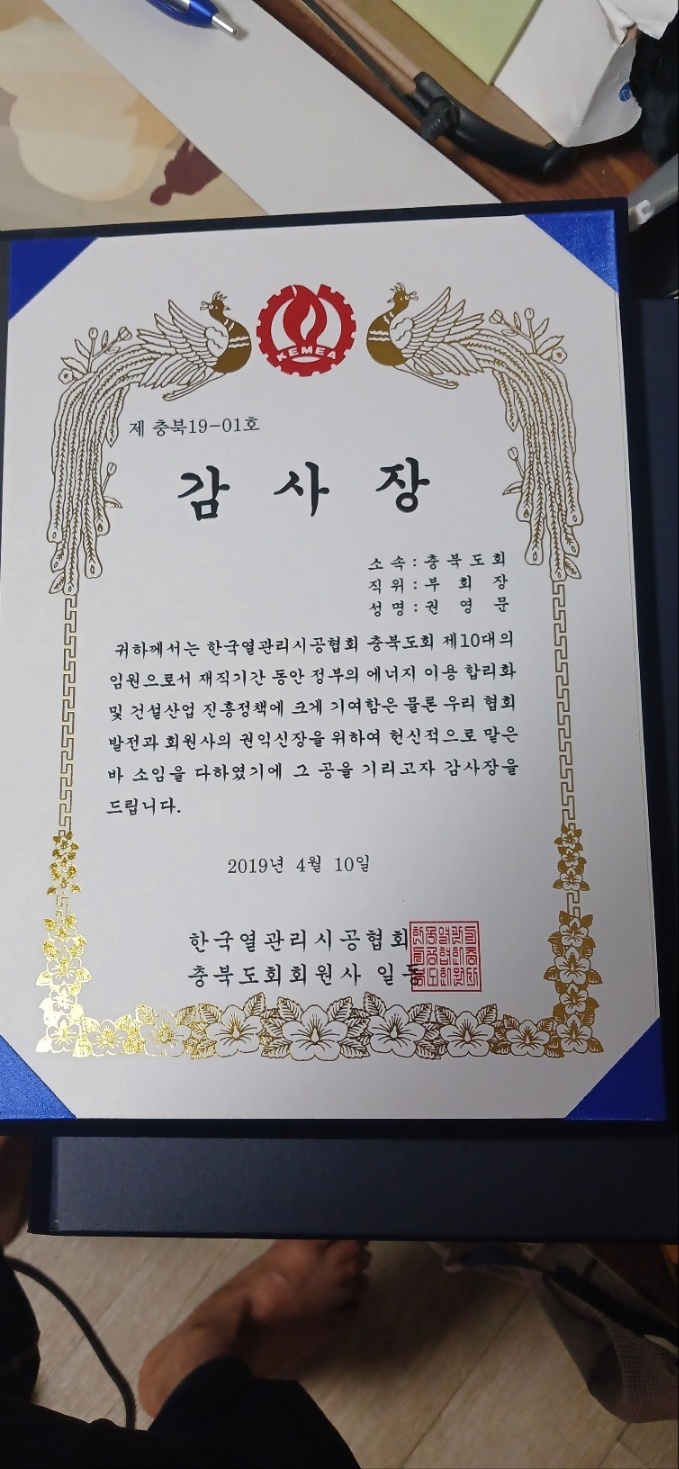 KEMEA
제 충북19-01호
감 사 장
소 속 : 충 북 도 회
직 위 : 부 회 장
성 명 : 권 영 문
귀하께서는 한국열관리시공협회 충북도회 제10대의
임원으로서 재직기간 동안 정부의 에너지 이용 합리화
및 건설산업 진흥정책에 크게 기여함은 물론 우리 협회
발전과 회원사의 권익신장을 위하여 헌신적으로 맡은
바 소임을 다하였기에 그 공을 기리고자 감사장을
드립니다.
2019년 4월 10일
한국열관리시공협회
충북도회회원사 일동